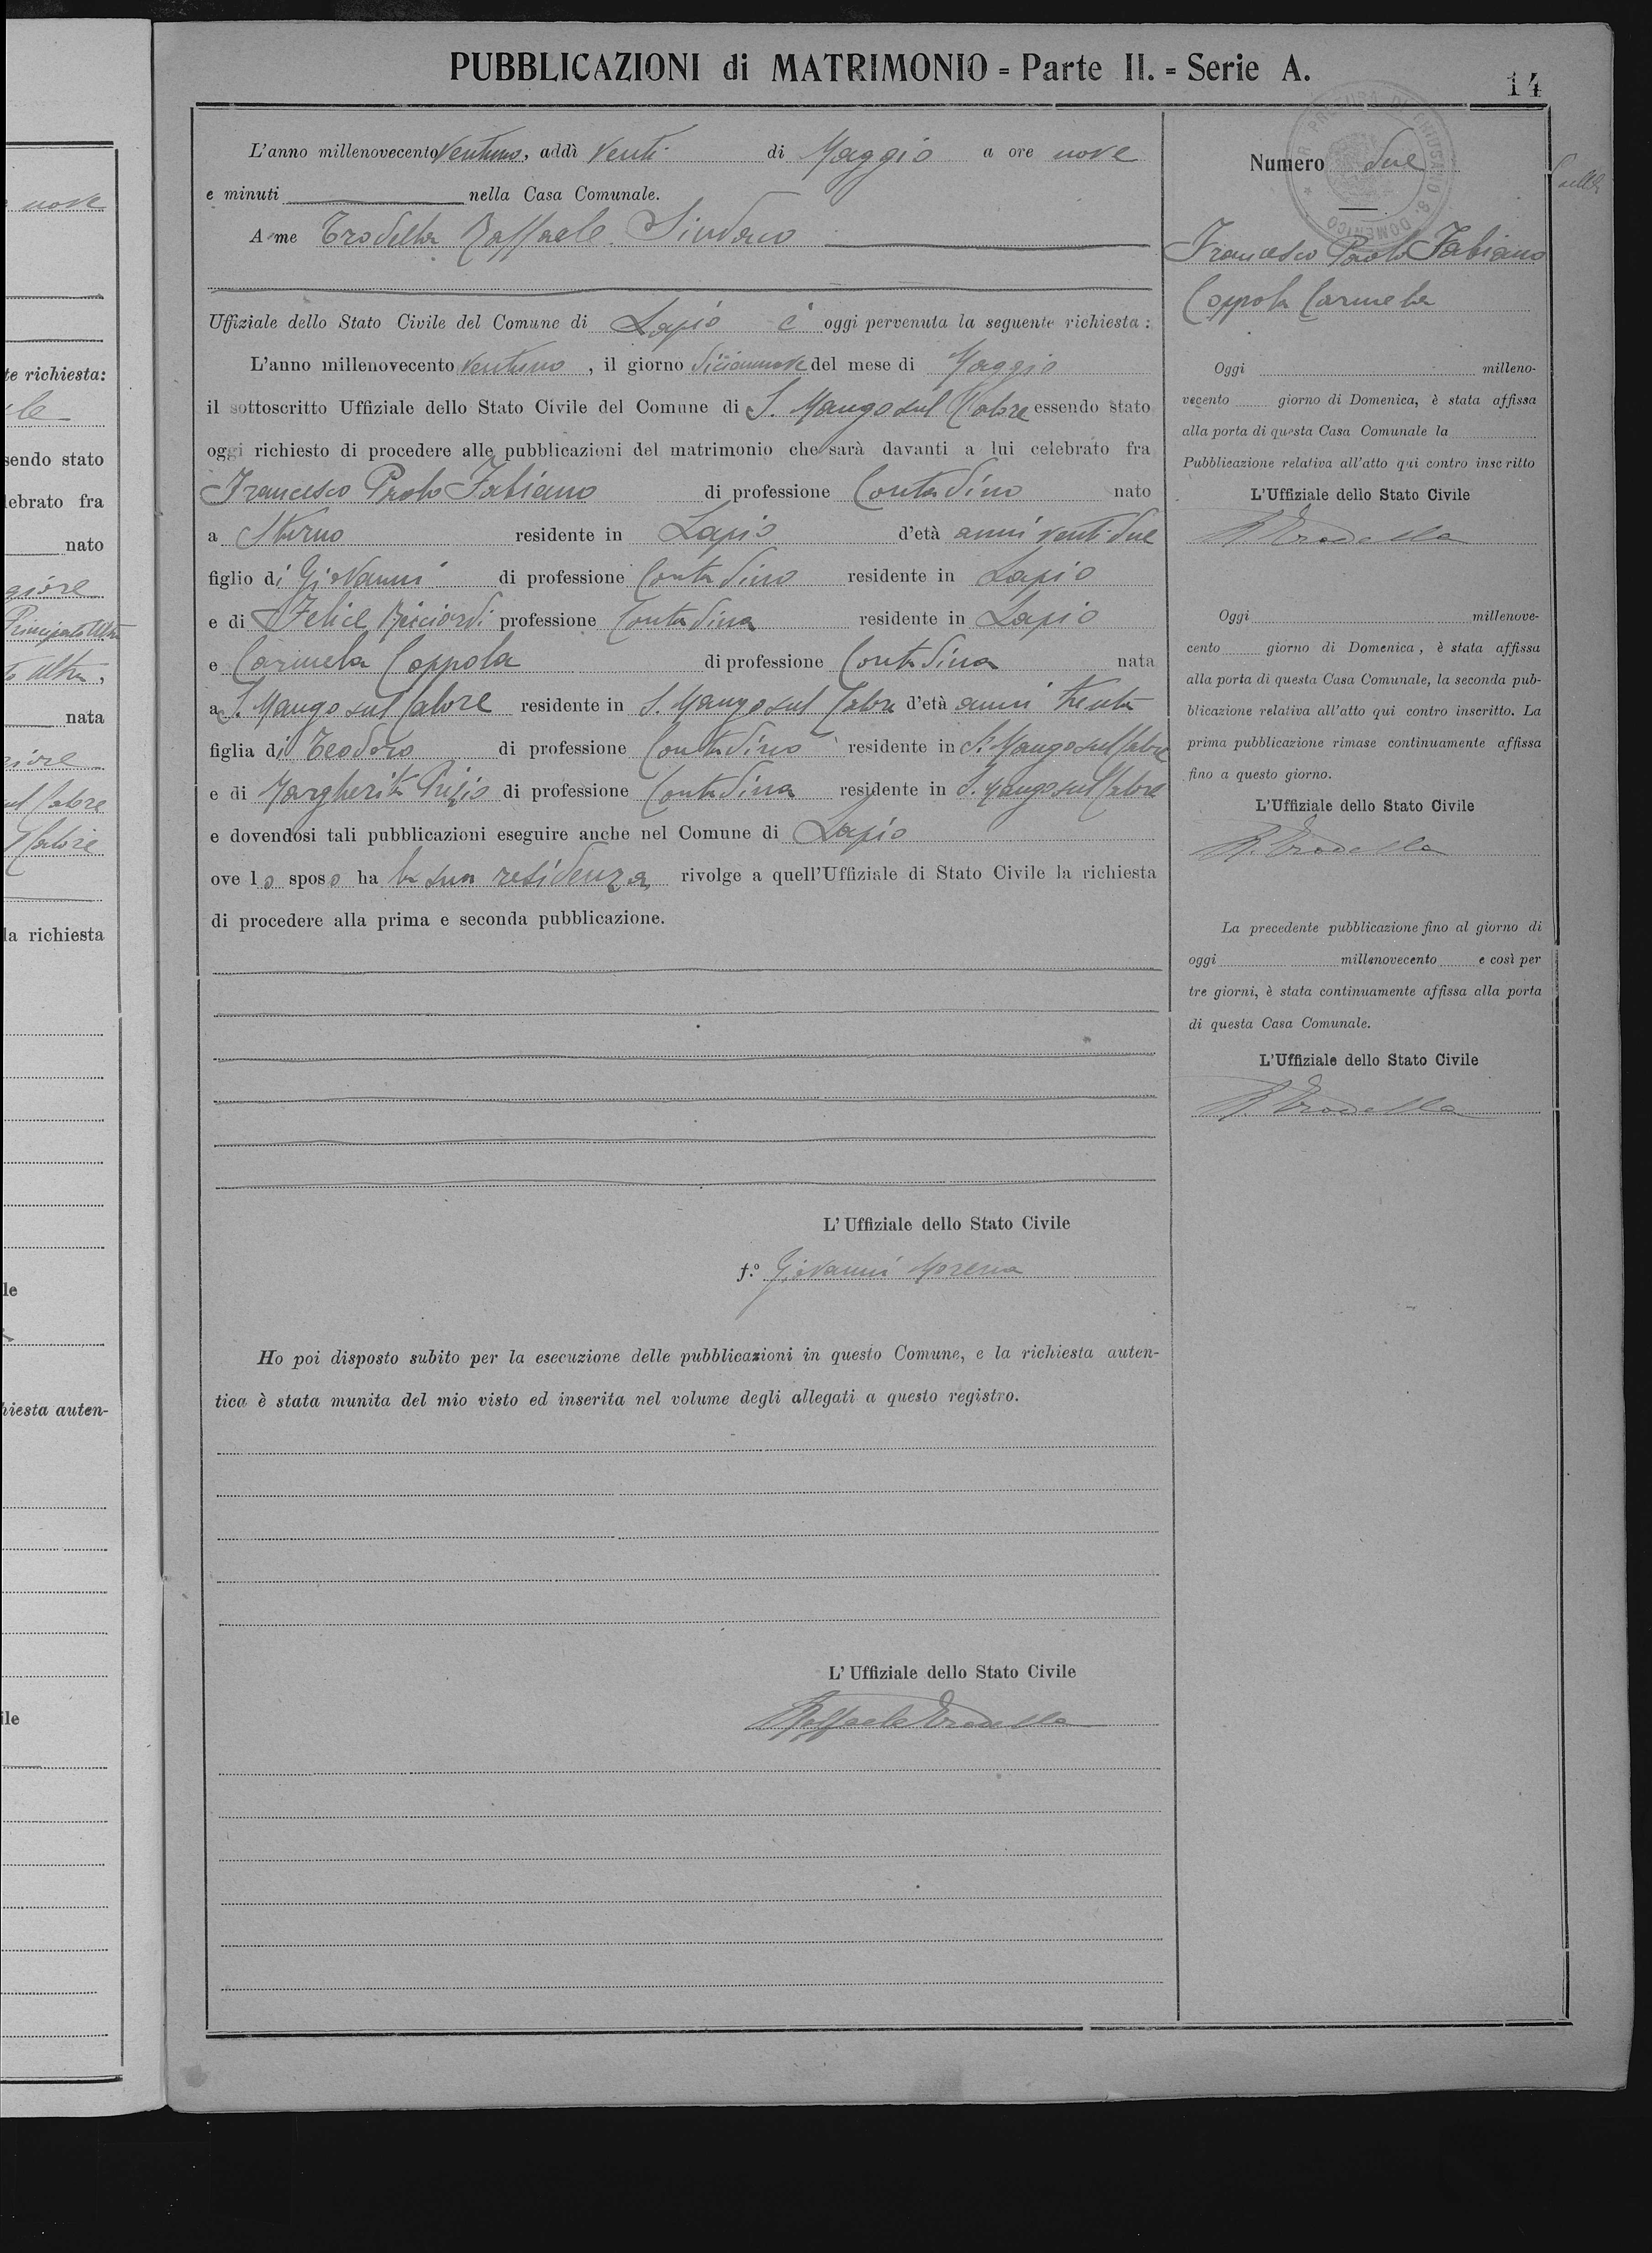 PUBBLICAZIONI di MATRIMONIO = Parte II. = Serie A.
14
L'anno millenovecento Ventuno, addì Venti di Maggio a ore nove
e minuti nella Casa Comunale.
A me Trodella Raffaele Sindaco
Uffiziale dello Stato Civile del Comune di Lapio è oggi pervenuta la seguente richiesta:
L'anno millenovecento ventuno, il giorno diciannove del mese di Maggio
il sottoscritto Uffiziale dello Stato Civile del Comune di S. Mango sul Calore essendo stato
oggi richiesto di procedere alle pubblicazioni del matrimonio che sarà davanti a lui celebrato fra
Francesco Paolo Fabiano di professione Contadino nato
a residente in Lapio d'età anni venti due
figlio di Giovanni di professione Contadino residente in Lapio
e di Felice professione Contadina residente in Lapio
e Carmela Coppola di professione Contadina nata
a S. Mango sul Calore residente in S. Mango sul Calore d'età anni trenta
figlia di Teodoro di professione Contadino residente in S. Mango sul Calore
e di Margherita Prizio di professione Contadina residente in S. Mango sul Calore
e dovendosi tali pubblicazioni eseguire anche nel Comune di Lapio
ove lo sposo ha la sua residenza rivolge a quell'Uffiziale di Stato Civile la richiesta
di procedere alla prima e seconda pubblicazione.
L'Uffiziale dello Stato Civile
f.º Giovanni Morena
Ho poi disposto subito per la esecuzione delle pubblicazioni in questo Comune, e la richiesta auten-
tica è stata munita del mio visto ed inserita nel volume degli allegati a questo registro.
L'Uffiziale dello Stato Civile
Raffaele Trodella
Numero due
Francesco Paolo Fabiano
Coppola Carmela
Oggi milleno-
vecento giorno di Domenica, è stata affissa
alla porta di questa Casa Comunale la
Pubblicazione relativa all'atto qui contro inscritto
L'Uffiziale dello Stato Civile
R Trodella
Oggi millenove-
cento giorno di Domenica, è stata affissa
alla porta di questa Casa Comunale, la seconda pub-
blicazione relativa all'atto qui contro inscritto. La
prima pubblicazione rimase continuamente affissa
fino a questo giorno.
L'Uffiziale dello Stato Civile
R. Trodella
La precedente pubblicazione fino al giorno di
oggi millenovecento e così per
tre giorni, è stata continuamente affissa alla porta
di questa Casa Comunale.
L'Uffiziale dello Stato Civile
R Trodella
nove
te richiesta:
sendo stato
lebrato fra
nato
giore
Principato Ultra
nata
Calore
la richiesta
le
hiesta auten-
ile